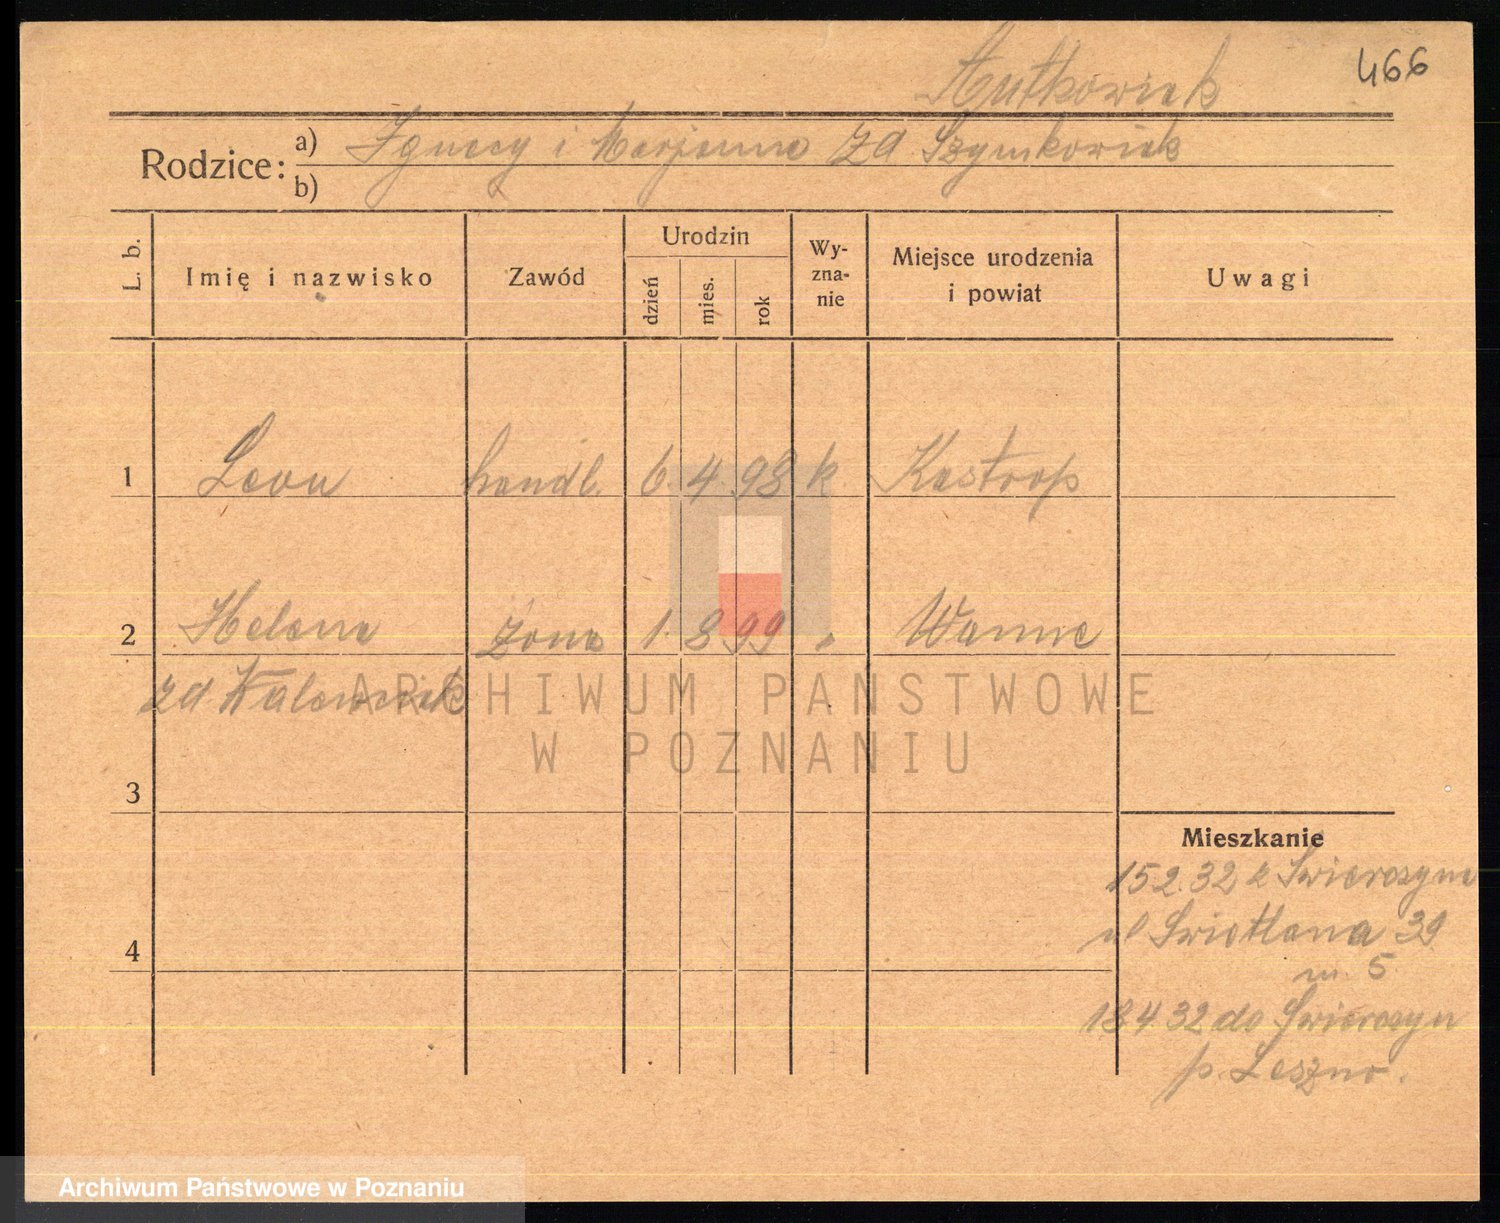 466
Rodzice: a) Ignacy i Marjanna zd Szymkowiak
b)
L. b.
Imię i nazwisko
Zawód
Urodzin
dzień
mies.
rok
Wy-
zna-
nie
Miejsce urodzenia
i powiat
Uwagi
1 Leon handl. 6. 4. 98 k Kastrop
2 Helena żona 1. 8 99 " Wanne
zd
3
4
Mieszkanie
15 2. 32 z
ul Swietlana 39
m. 5
18 4 32 do
p. Leszno.
ARCHIWUM PAŃSTWOWE
W POZNANIU
Archiwum Państwowe w Poznaniu